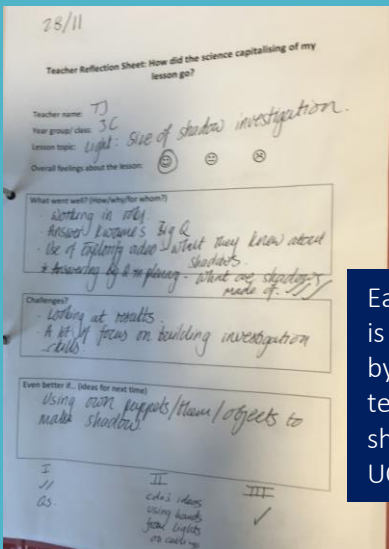 28/11
Teacher Reflection Sheet: How did the science capitalising of my
lesson go?
Teacher name: TJ
Year group/ class: 3C
Lesson topic: Light: Size of shadow investigation.
Overall feelings about the lesson:
What went well? (How/why/for whom?)
- Working in
- Answer Kwame's Big Q
- Use of Explorify video - what they knew about
shadows.
Answering big Q in - what are shadows
made of.
Challenges?
- Looking at results.
- A lot of focus on building investigation
skills.
Even better if... (ideas for next time)
Using own puppets/them/objects to
make shadow
I
II
III
Qs.
ideas
using hands
from lights
on ceiling
Ea
is
by
te
sh
UC